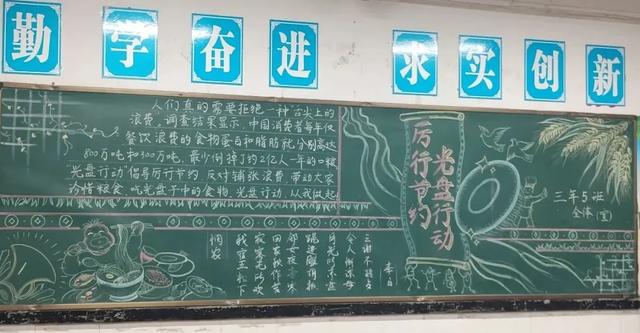 勤学奋进 求实创新
人们真的需要拒绝一种舌尖上的
浪费,调查结果显示,中国消费者每年仅
餐饮浪费的食物蛋白和脂肪就分别高达
800万吨和300万吨,最少倒掉了约2亿人一年的口粮
光盘行动 倡导厉行节约 反对铺张浪费 带动大家
珍惜粮食,吃光盘子中的食物,光盘行动,从我做起
光盘行动
厉行节约
三年5班
全体(宣)
李白
悯农